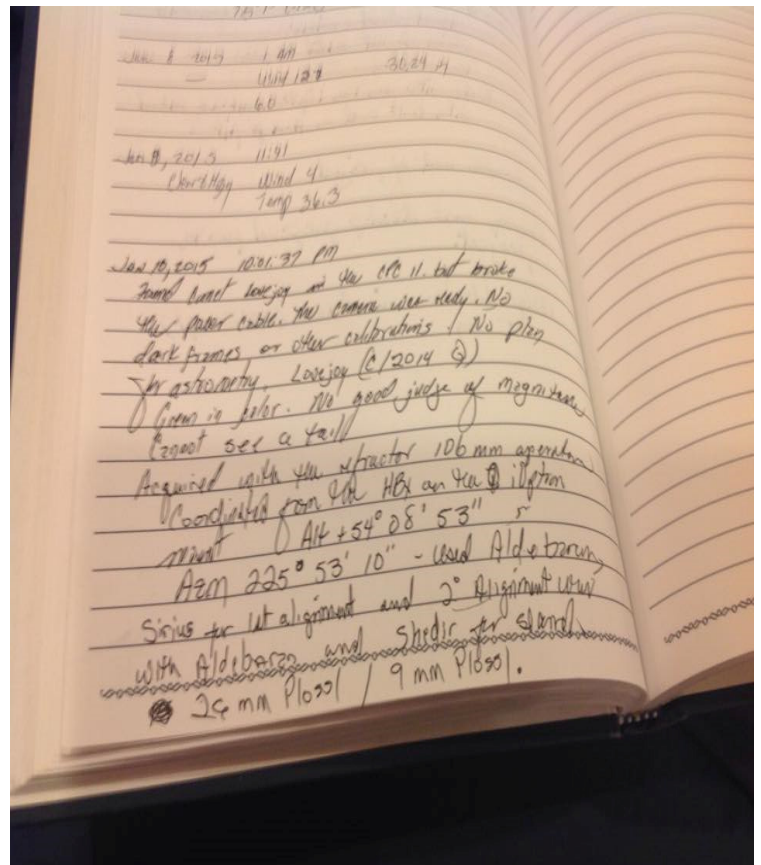 2015 1 AM
30.24
60
Jan 8, 2015 11:41
Wind 4
Temp 36.3
Jan 10, 2015 10:01:37 PM
Found Comet Lovejoy in the CPC 11. but broke
the power cable. The camera was ready. No
dark frames, or other calibrations. No plan
for astrometry. Lovejoy (C/2014 Q)
Green in color. No good judge of magnitude
Cannot see a tail
Acquired with the refractor 106 mm
Coordinates from the HBx on the iOptron
mount Alt +54° 08' 53"
Azm 225° 53' 10" - used Aldebaran,
Sirius for 1st alignment and 2° Alignment was
with Aldebaran and Shedir for
26 mm Plossl / 9 mm Plossl.